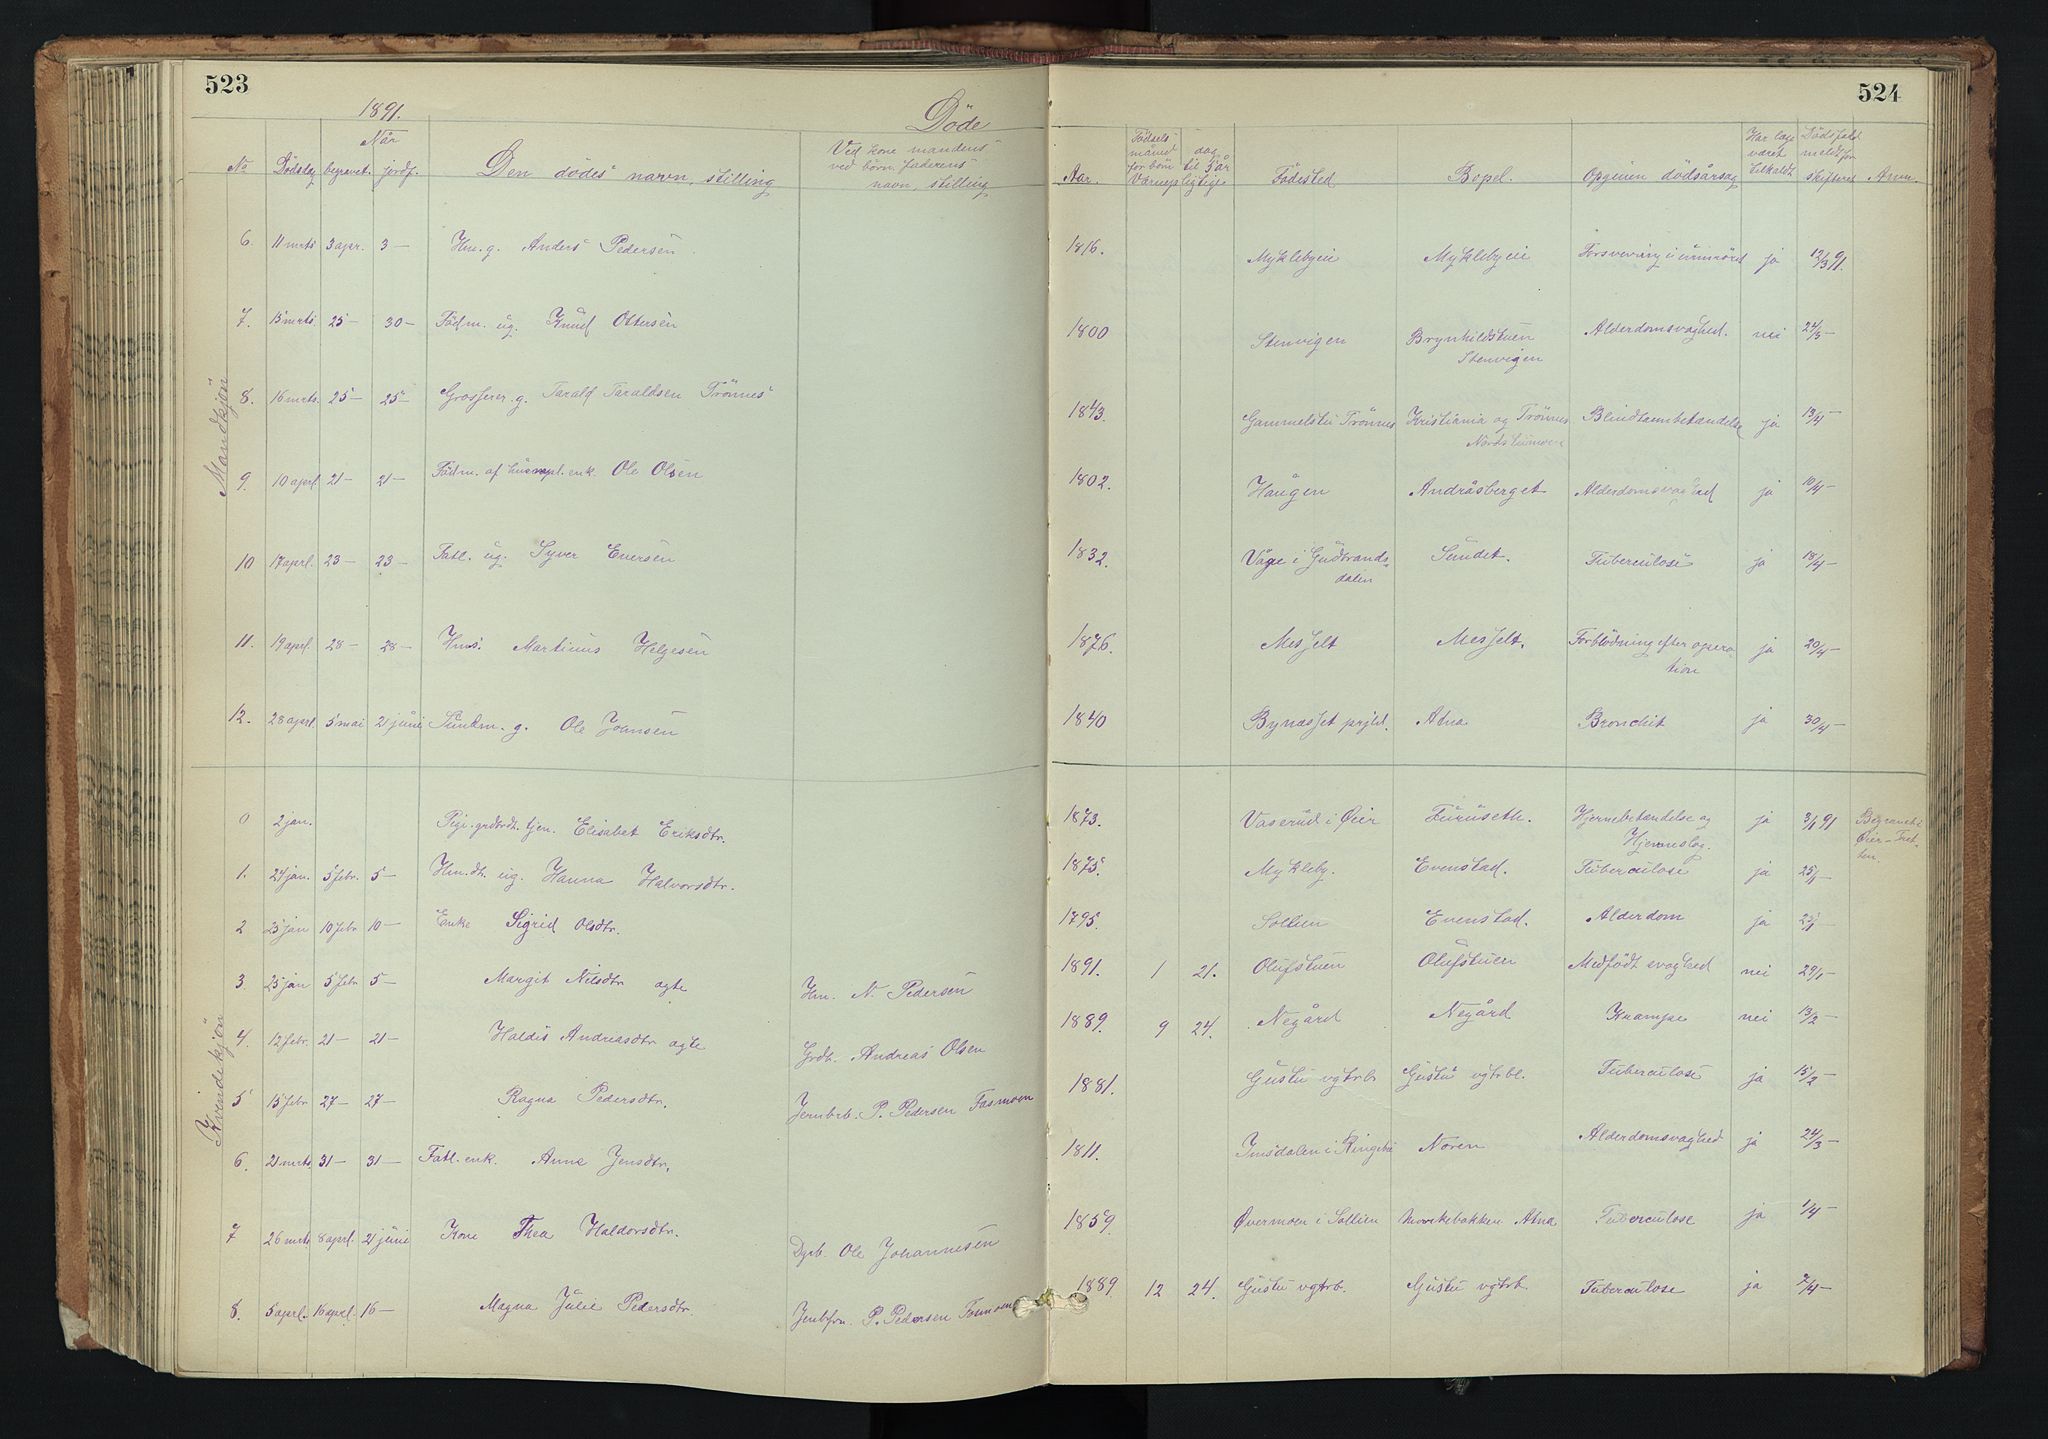 523
524
1891. Döde
Når
No Dödsdag begravet. jordf. Den dödes navn, stilling Ved kone mandens ved börn faderens navn, stilling Aar. Födsels måned dag for börn til 5 år Værnepligtige Födested Bopel. Opgiven dödsårsag Har læge været tilkaldt Dödsfald meldt for skifteret Anm.
Mandkjön
6. 11 mrts 3 apr. 3 — Hm. g. Anders Pedersen 1816. Myklebyeie Myklebyeie ja 12/3 91.
7. 15 mrts 25 — 30 — Födm. ug. Knud Ottersen 1800 Stenvigen Brynhildstuen Alderdomsvaghed. nei 24/3 —
Stenvigen
8. 16 mrts. 25 — 25 — Grosserer. g. Tarald Taraldsen Trönnes 1843. Gammelstu Trönnes Kristiania og Trönnes Blindtarmbetændelse ja 13/4 —
9. 10 aprl 21 — 21 — Födm. af husmpl. enk. Ole Olsen 1802. Haugen Andråsberget Alderdomsvaghed ja 10/4 —
10 17 aprl. 23 — 23 — Fatl. ug. Syver Eversen 1832. Våge i Gudbrands- Sundet. Tuberculose ja 18/4 —
dalen
11. 19 aprl. 28 — 28 — Hms. Martinus Helgesen 1876. Messelt Messelt. Forblödning efter opera- ja 20/4 —
tion
12. 28 aprl. 5 mai 21 juni g. Ole Jonsen 1840 Bynesset prjld. Atna Bronchit ja 30/4 —
Kvindekjön
0 2 jan. Pige. grdbrdt. tjen. Elisabet Eriksdtr. 1873. Vaserud i Öier Furuseth. Hjernebetændelse og ja 3/1 91 Begravet i
Hjerneslag. Öier — Tret-
ten.
1. 24 jan. 5 febr. 5 — Hm. dt. ug. Hanna Halvorsdtr. 1875. Mykleby. Evenstad. Tuberculose ja 25/1
2 25 jan 10 febr 10 — Enke Sigrid Olsdtr. 1795. Sollien Evenstad. Alderdom ja
3 25 jan 5 febr 5 — Margit Nilsdtr ægte Hm. N. Pedersen 1891. 1 21. Olufstuen Olufstuen Medfödt svaghed nei 29/1 —
4. 12 febr. 21 — 21 — Haldis Andreasdtr ægte Grdb. Andreas Olsen 1889. 9 24. Negård Negård Krampe nei 13/2 —
5 15 febr 27 — 27 — Ragna Pedersdtr. Jernbrb. P. Pedersen Fosmoen 1881. Gustu vgtrb Gustu vgtrbl. Tuberculose ja 15/2 —
6. 21 mrts 31 — 31 — Fatl. enk. Anne Jensdtr. 1811. Imsdalen i Ringebu Noren Alderdomsvaghed ja 24/3 —
7 26 mrts 8 aprl. 21 juni Kone Thea Haldorsdtr. Dgrb. Ole Johannesen 1859. Övermoen i Sollien Atna Tuberculose ja 1/4 —
8. 5 aprl. 16 aprl. 16 — Magna Julie Pedersdtr. P. Pedersen Fosmoen 1889 12 24. Gustu vgtrb. Gustu vgtrb. Tuberculose ja 7/4 —